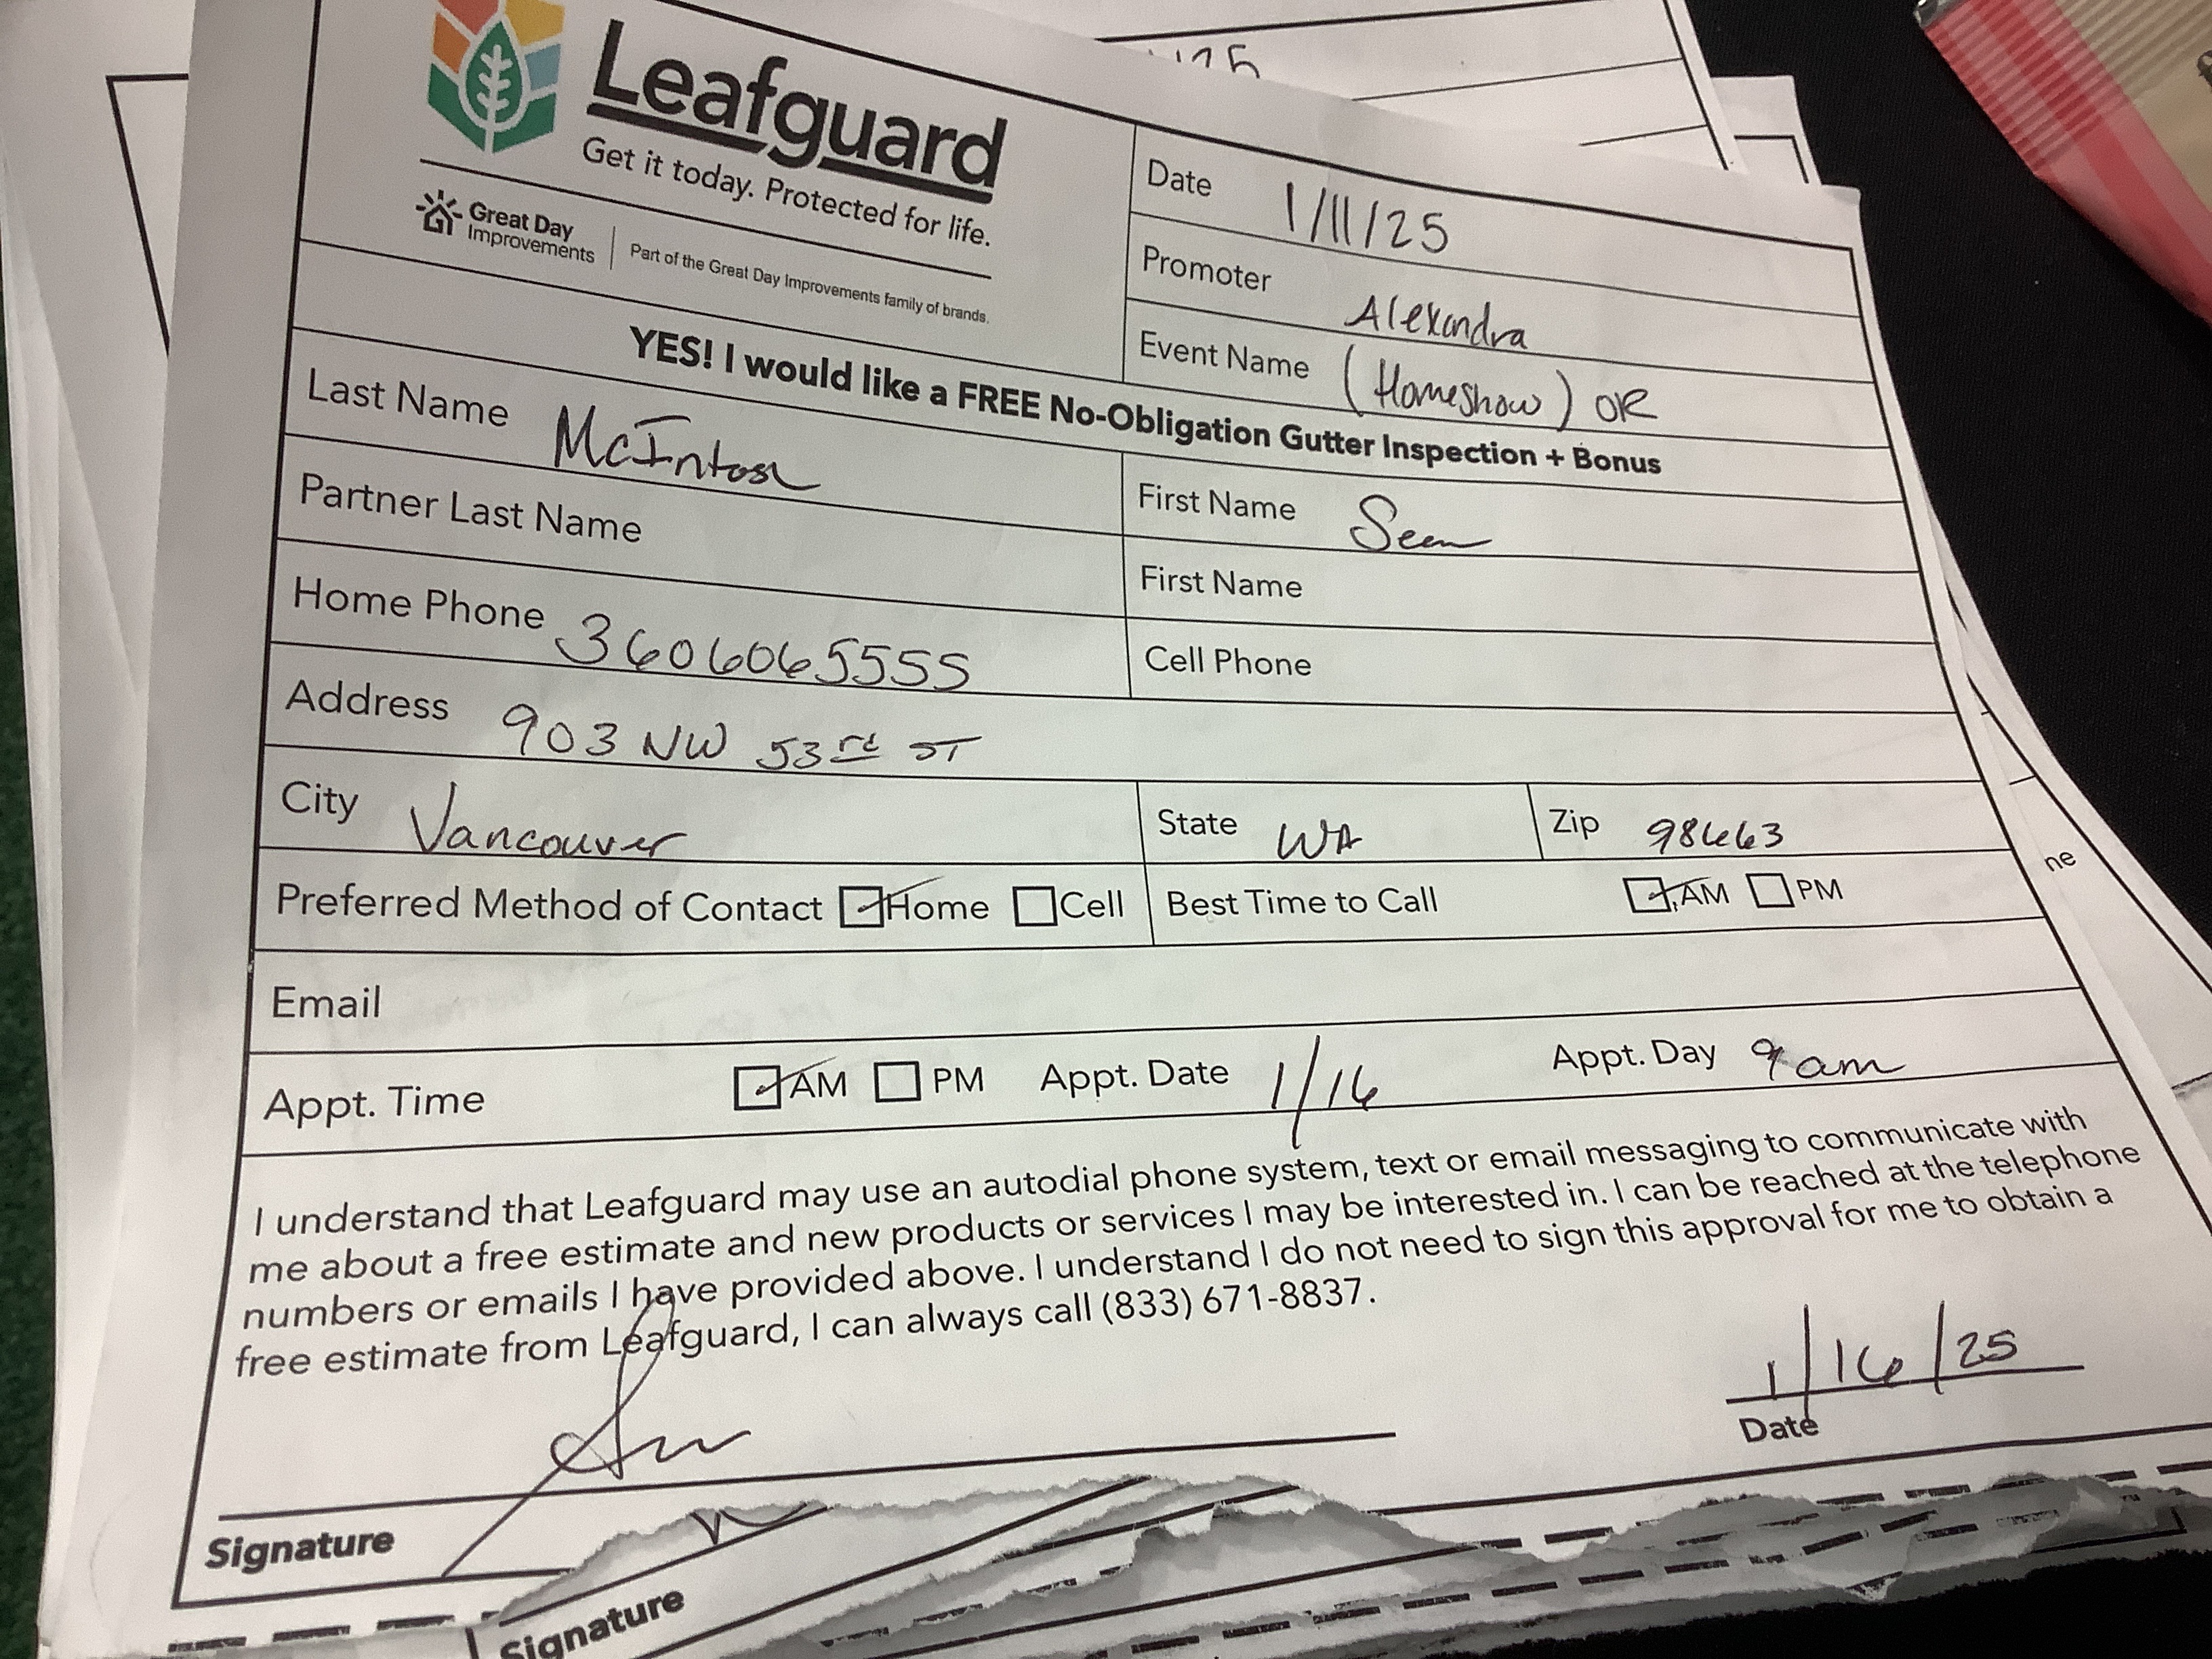 Leafguard
Get it today. Protected for life.
Great Day
Improvements
Part of the Great Day Improvements family of brands.
Date 1/11/25
Promoter Alexandra
Event Name (Homeshow) OR
YES! I would like a FREE No-Obligation Gutter Inspection + Bonus
Last Name McIntosh
First Name Sean
Partner Last Name
First Name
Home Phone 3606065555
Cell Phone
Address 903 NW 53rd ST
City Vancouver
State WA
Zip 98663
Preferred Method of Contact Home Cell
Best Time to Call AM PM
Email
Appt. Time AM PM Appt. Date 1/16 Appt. Day 9am
I understand that Leafguard may use an autodial phone system, text or email messaging to communicate with
me about a free estimate and new products or services I may be interested in. I can be reached at the telephone
numbers or emails I have provided above. I understand I do not need to sign this approval for me to obtain a
free estimate from Leafguard, I can always call (833) 671-8837.
1/16/25
Signature
Date
Signature
ne